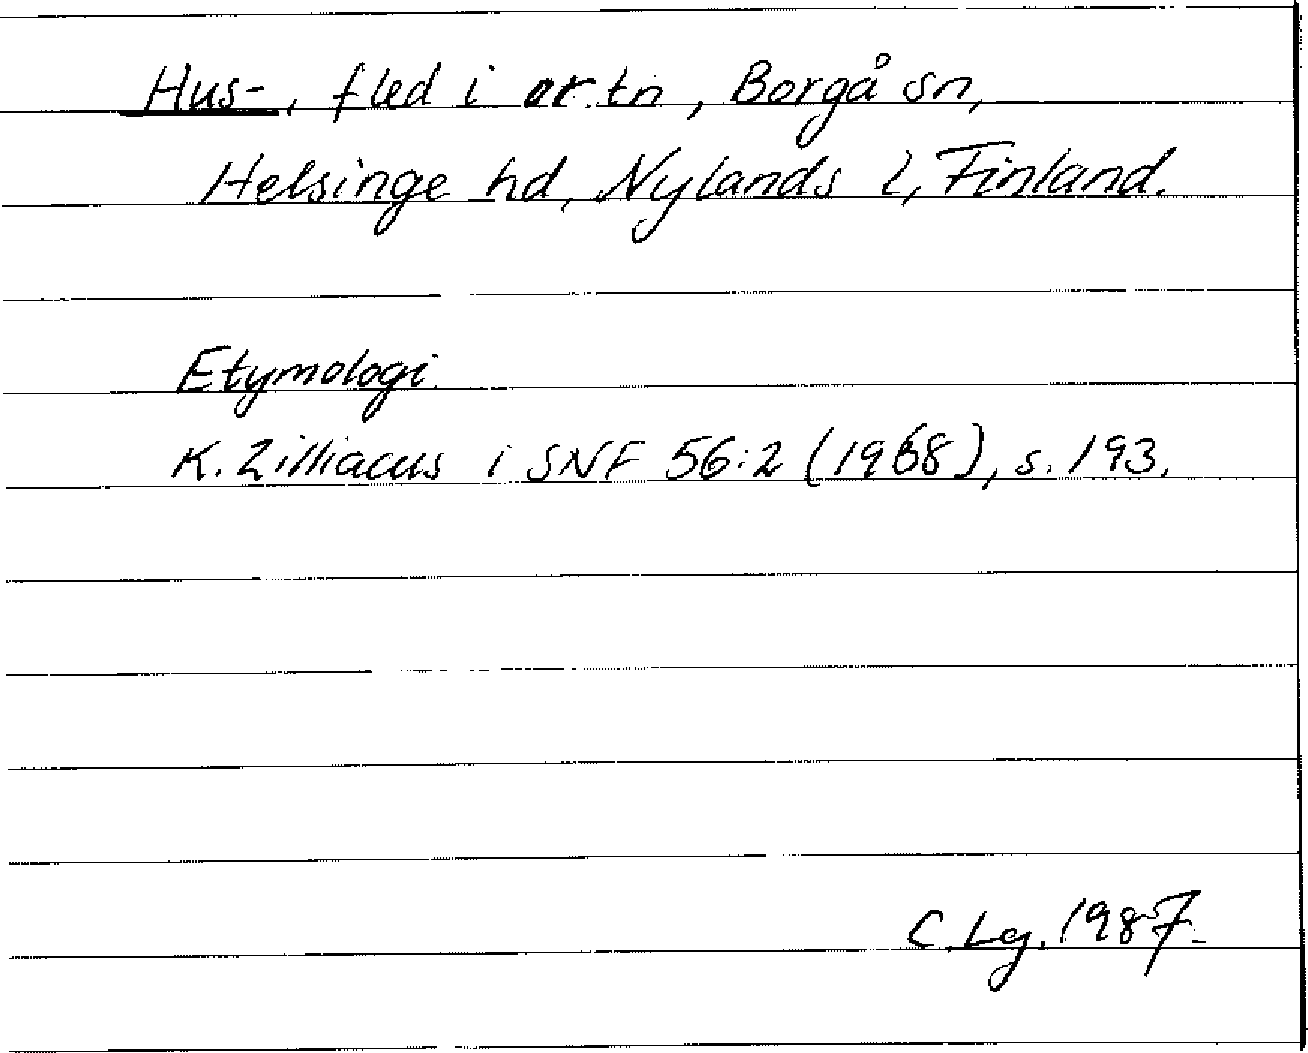 Hus-, f led i ør.tn, Borgå sn,
Helsinge hd, Nylands l, Finland.
Etymologi.
K. Zilliacus i SNF 56:2 (1968), s. 193.
C. Lg. 1987.